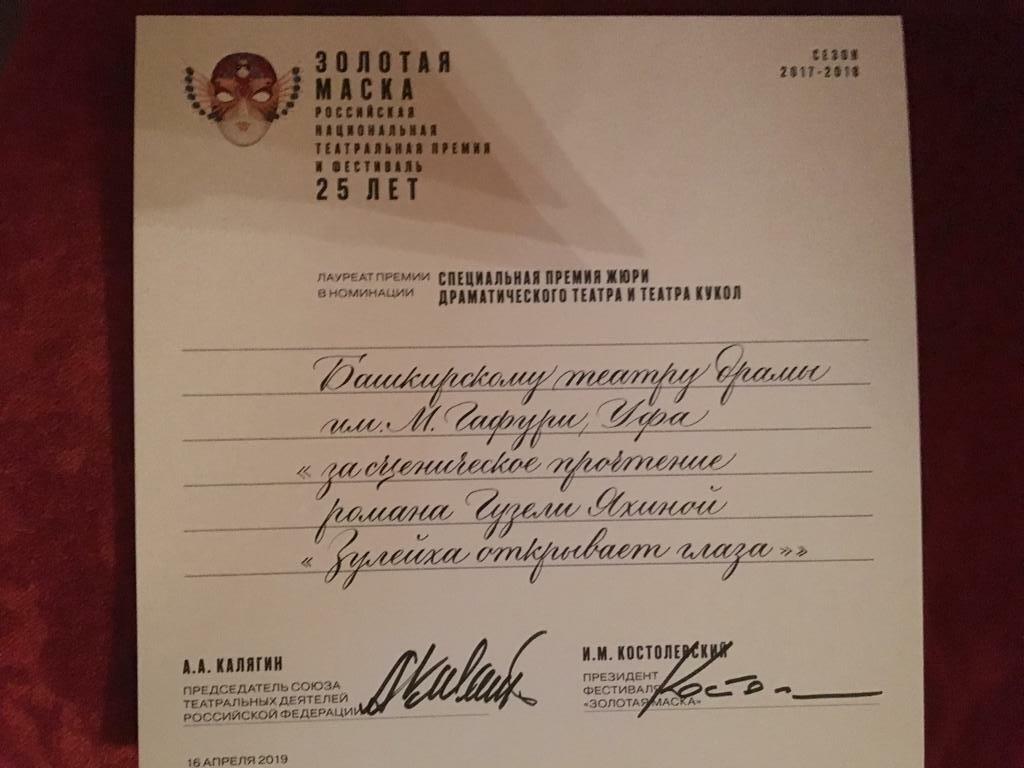 ЗОЛОТАЯ
МАСКА
РОССИЙСКАЯ
НАЦИОНАЛЬНАЯ
ТЕАТРАЛЬНАЯ ПРЕМИЯ
И ФЕСТИВАЛЬ
25 ЛЕТ
СЕЗОН
2017-2018
ЛАУРЕАТ ПРЕМИИ
В НОМИНАЦИИ
СПЕЦИАЛЬНАЯ ПРЕМИЯ ЖЮРИ
ДРАМАТИЧЕСКОГО ТЕАТРА И ТЕАТРА КУКОЛ
Башкирскому театру драмы
им. М. Гафури, Уфа
« за сценическое прочтение
романа Гузели Яхиной
« Зулейха открывает глаза »»
А.А. КАЛЯГИН
ПРЕДСЕДАТЕЛЬ СОЮЗА
ТЕАТРАЛЬНЫХ ДЕЯТЕЛЕЙ
РОССИЙСКОЙ ФЕДЕРАЦИИ
И.М. КОСТОЛЕВСКИЙ
ПРЕЗИДЕНТ
ФЕСТИВАЛЯ
«ЗОЛОТАЯ МАСКА»
16 АПРЕЛЯ 2019